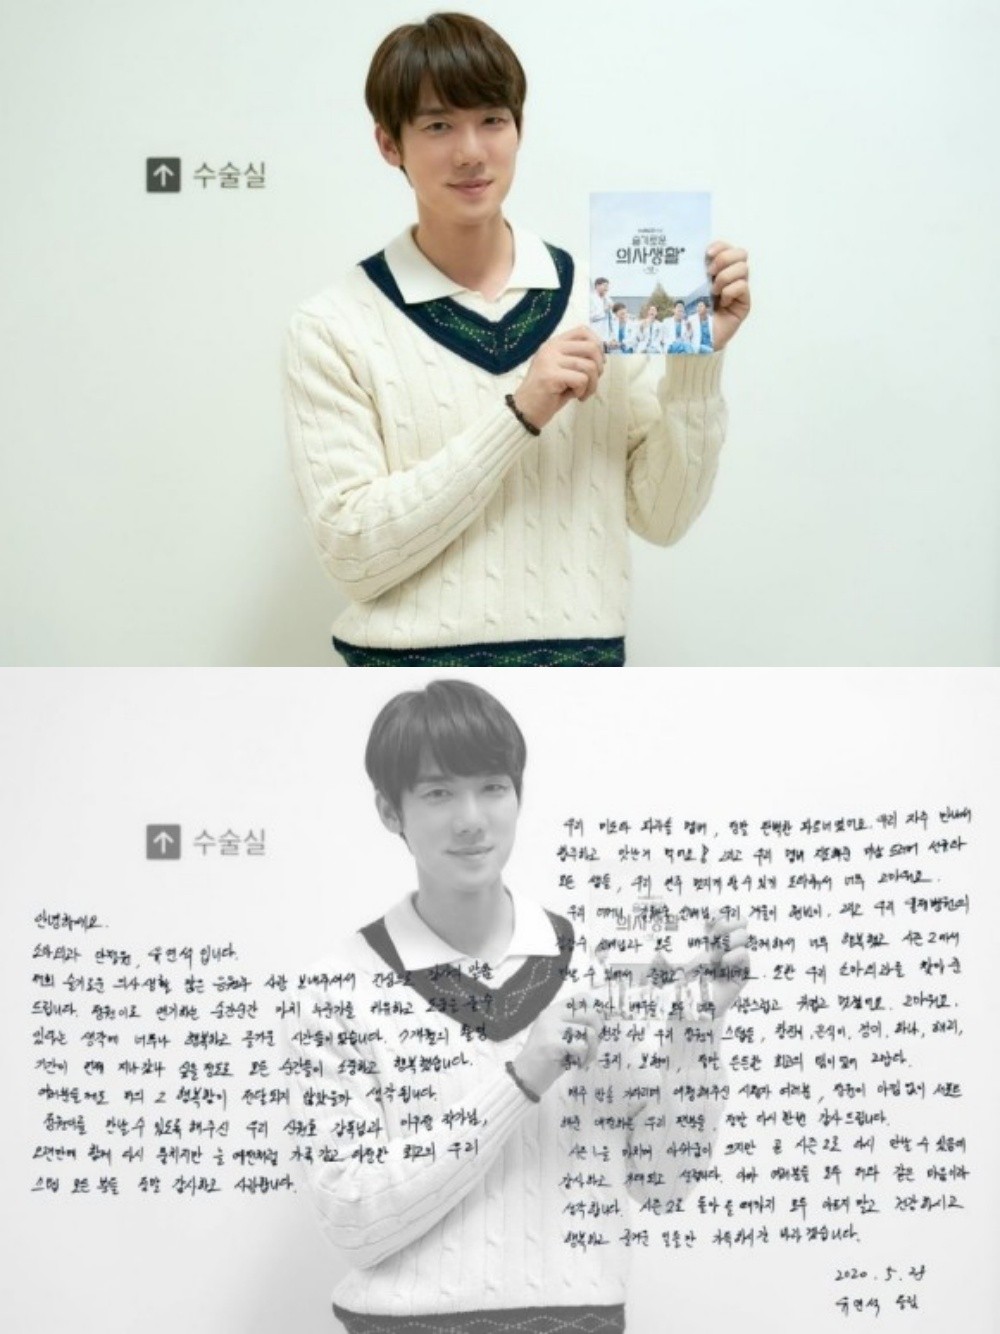 수술실
슬기로운
의사생활
수술실
안녕하세요.
소아외과 안정원, 유연석 입니다.
저희 슬기로운 의사생활 많은 응원과 사랑 보내주셔서 진심으로 감사의 말씀
드립니다. 정원이로 연기하는 순간순간 마치 누군가를 치유하고 도움을 줄 수
있다는 생각에 너무나 행복하고 즐거운 시간들이었습니다. 7개월의 촬영
기간이 언제 지나갔나 싶을 정도로 모든 순간들이 소중하고 행복했습니다.
여러분들께도 저의 그 행복함이 전달되지 않았을까 생각됩니다.
정원이를 만날 수 있도록 해주신 우리 신원호 감독님과 이우정 작가님,
오랜만에 함께 다시 뭉치지만 늘 예전처럼 가족 같고 따뜻한 최고의 우리
스텝 모든 분들 정말 감사하고 사랑합니다.
우리 미도와 파라솔 멤버, 정말 완벽한 파트너였어요. 우리 자주 만나서
합주하고 맛난거 먹어요! 그리고 우리 멤버 드러머 선규와
모든 쌤들, 우리 연주 멋지게 할 수 있게 도와줘서 너무 고마워요.
우리 어머니 김해숙 선배님, 우리 겨울이 현빈이, 그리고 우리 율제병원의
김갑수 선배님과 모든 배우분들 함께해서 너무 행복했고 시즌2에서
만날 수 있어서 즐겁고 기대되네요. 또한 우리 소아외과를 찾아준
아기 천사 배우들, 모두 너무 사랑스럽고 귀엽고 멋졌어요. 고마워요.
함께 현장 사신 우리 정원이 스텝들, 창현이, 은식이, 경이, 하나, 혜리,
윤지, 보현이, 정말 든든한 최고의 팀이었어 고맙다.
매주 방송 기다리며 애청해주신 시청자 여러분, 정원이 아낌 없이 서포트
해준 애정하는 우리 팬분들, 정말 다시 한번 감사드립니다.
시즌1을 마치며 아쉬움이 크지만 곧 시즌2로 다시 만날 수 있음에
감사하고 기대되고 설렙니다. 아마 여러분들 모두 저와 같은 마음이라
생각합니다. 시즌2로 돌아올 때까지 모두 아프지 말고 건강하시고
행복하고 즐거운 일들만 가득하시길 바라겠습니다.
2020. 5. 28
유연석 올림